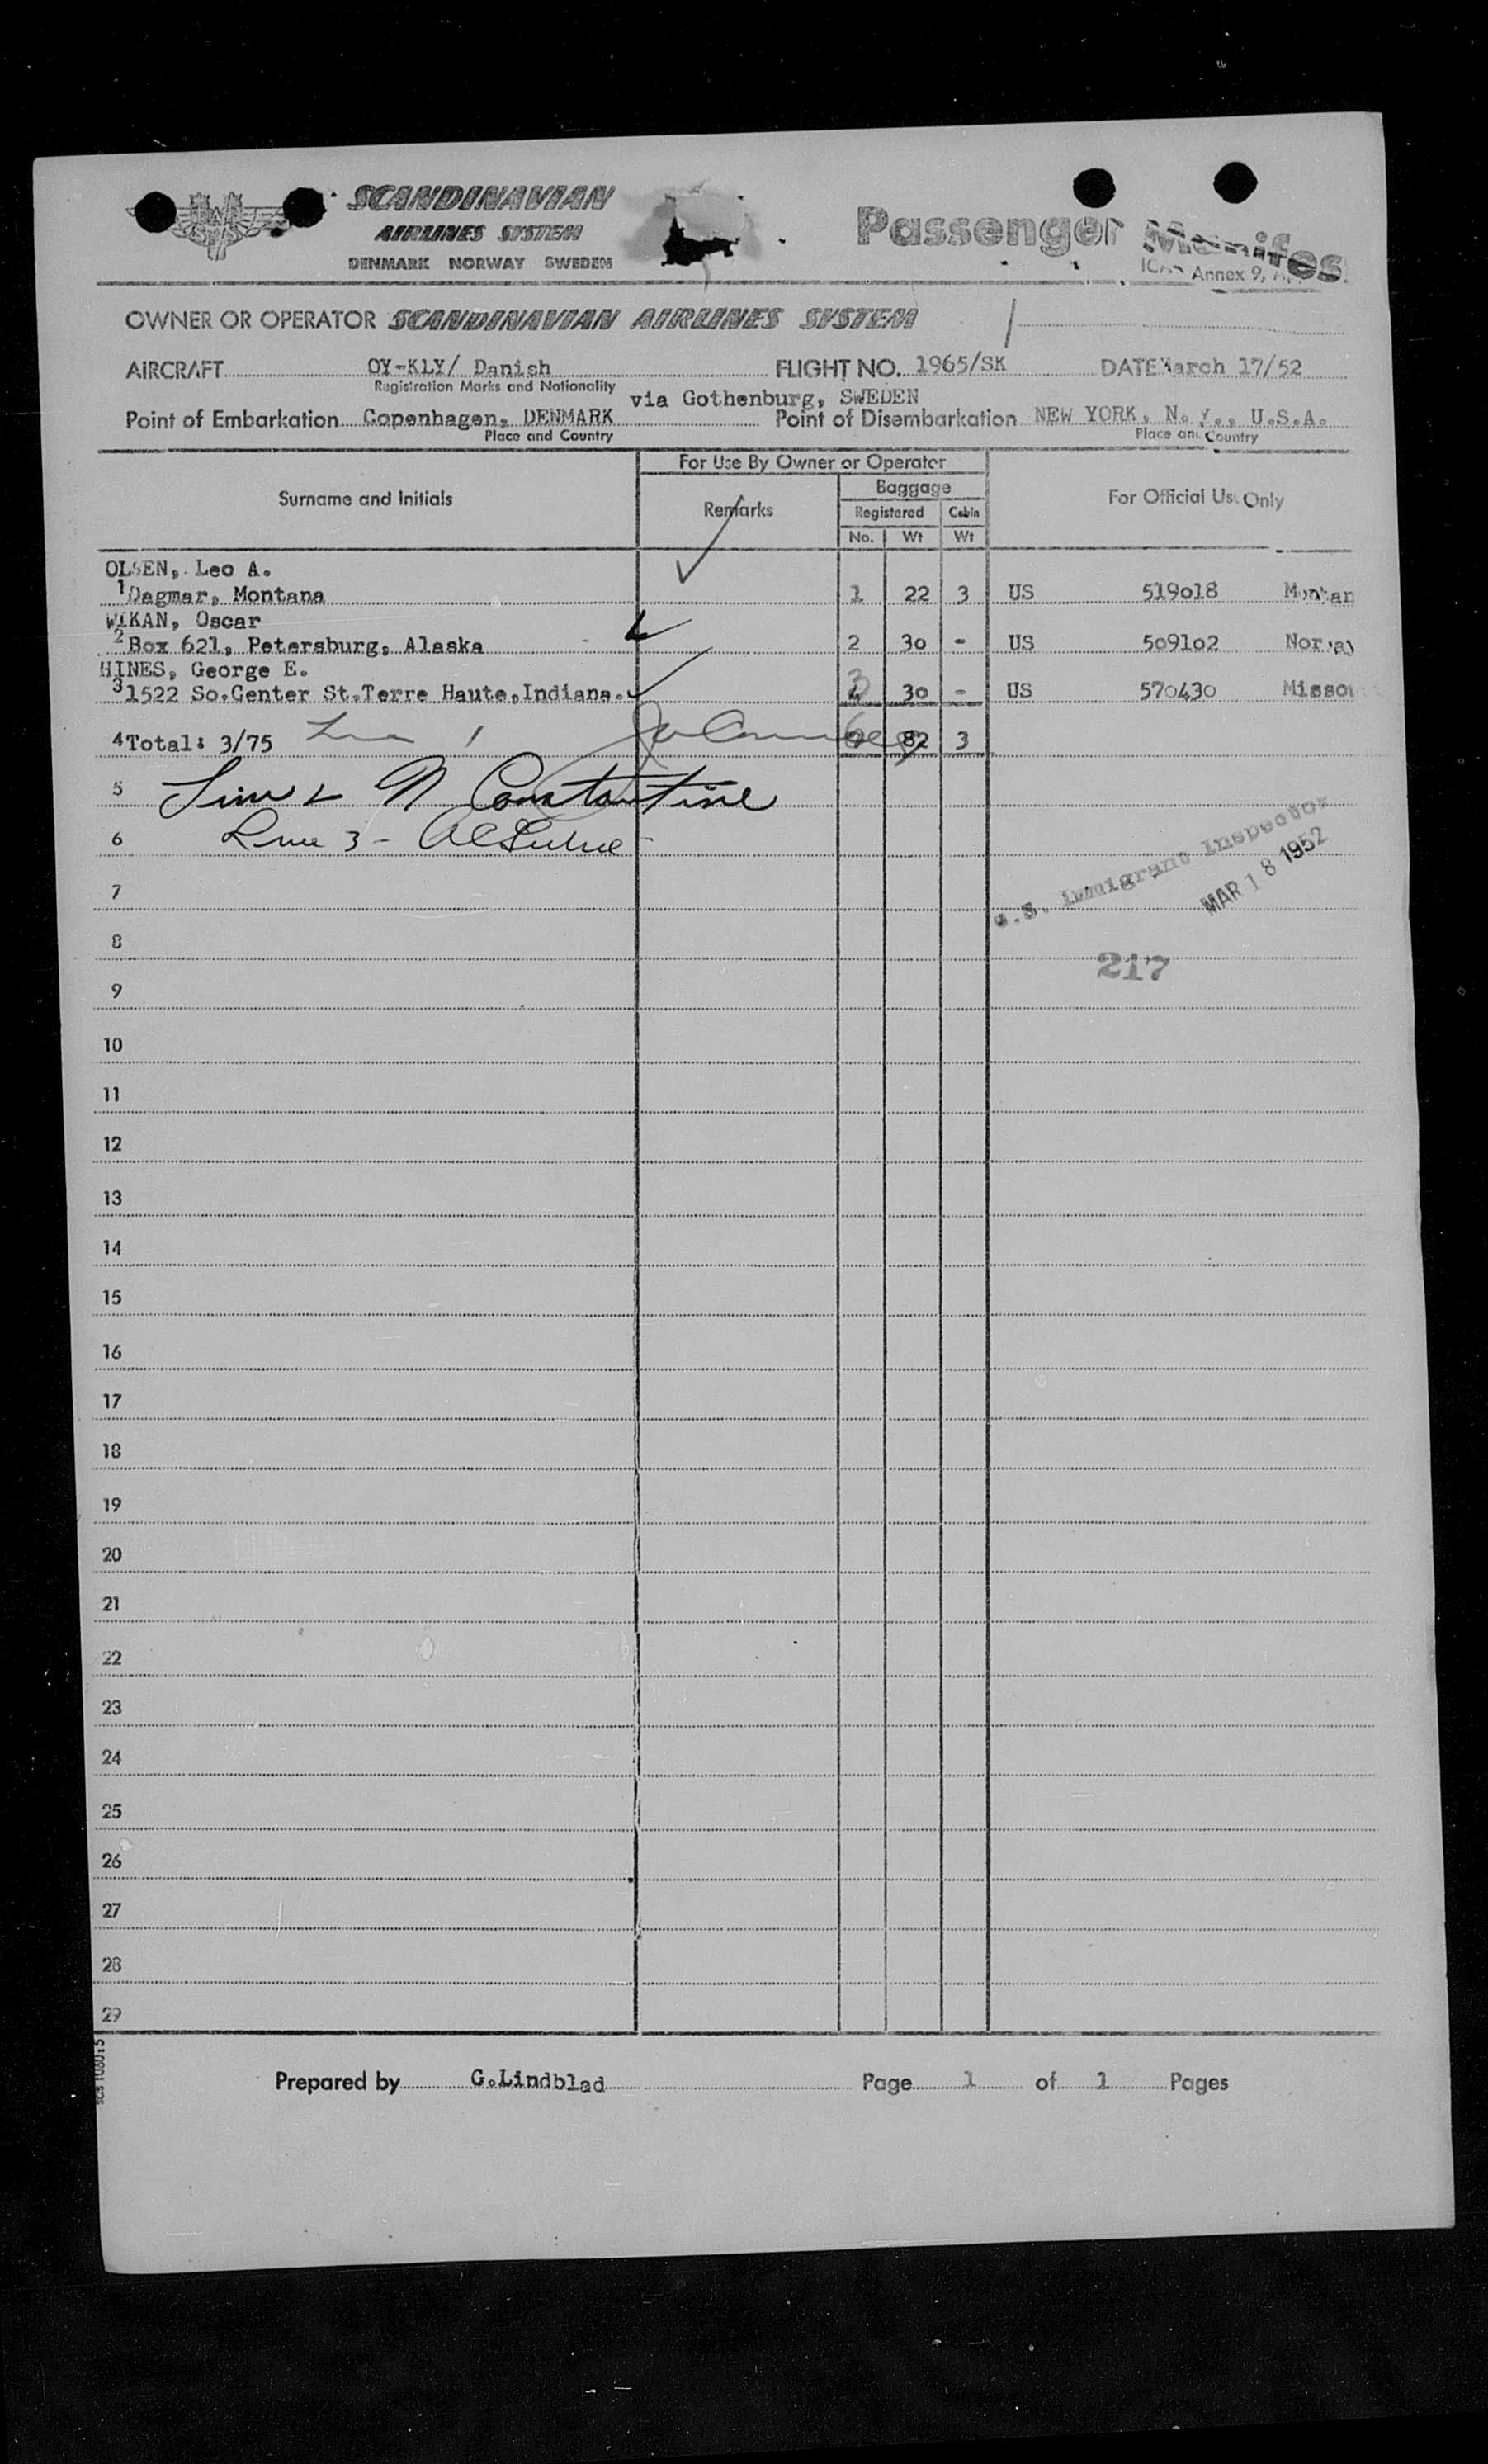 SCANDINAVIAN
AIRLINES SYSTEM
DENMARK NORWAY SWEDEN
Passenger Manifes
ICA Annex 9,
OWNER OR OPERATOR SCANDINAVIAN AIRLINES SYSTEM
AIRCRAFT OY-KLY/ Danish FLIGHT NO. 1965/SK DATE March 17/52
Registration Marks and Nationality
via Gothenburg, SWEDEN
Point of Embarkation Copenhagen, DENMARK Point of Disembarkation NEW YORK, N.Y., U.S.A.
Place and Country Place and Country
For Use By Owner or Operator
Surname and Initials Remarks Baggage For Official Use Only
Registered Cabin
No. Wt Wt
OLSEN, Leo A.
1 Dagmar, Montana 1 22 3 US 519018 Montan
WIKAN, Oscar
2 Box 621, Petersburg, Alaska 2 30 - US 509102 Norway
HINES, George E.
3 1522 So.Center St.Terre Haute,Indiana. 3 30 - US 570430 Missou
4 Total: 3/75 82 3
5 Line 2 M Constantine
6 Line 3 -
U.S. Immigrant Inspector
MAR 18 1952
7
8
217
9
10
11
12
13
14
15
16
17
18
19
20
21
22
23
24
25
26
27
28
29
Prepared by G.Lindblad Page 1 of 1 Pages